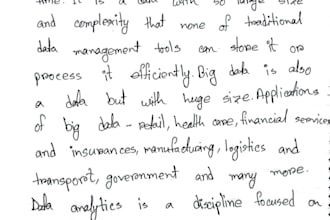 time. It is a data with so large size
and complexity that none of traditional
data management tools can store it or
process it efficiently. Big data is also
a data but with huge size. Applications
of big data - retail, health care, financial services
and insurances, manufacturing, logistics and
transport, government and many more.
Data analytics is a discipline focused on